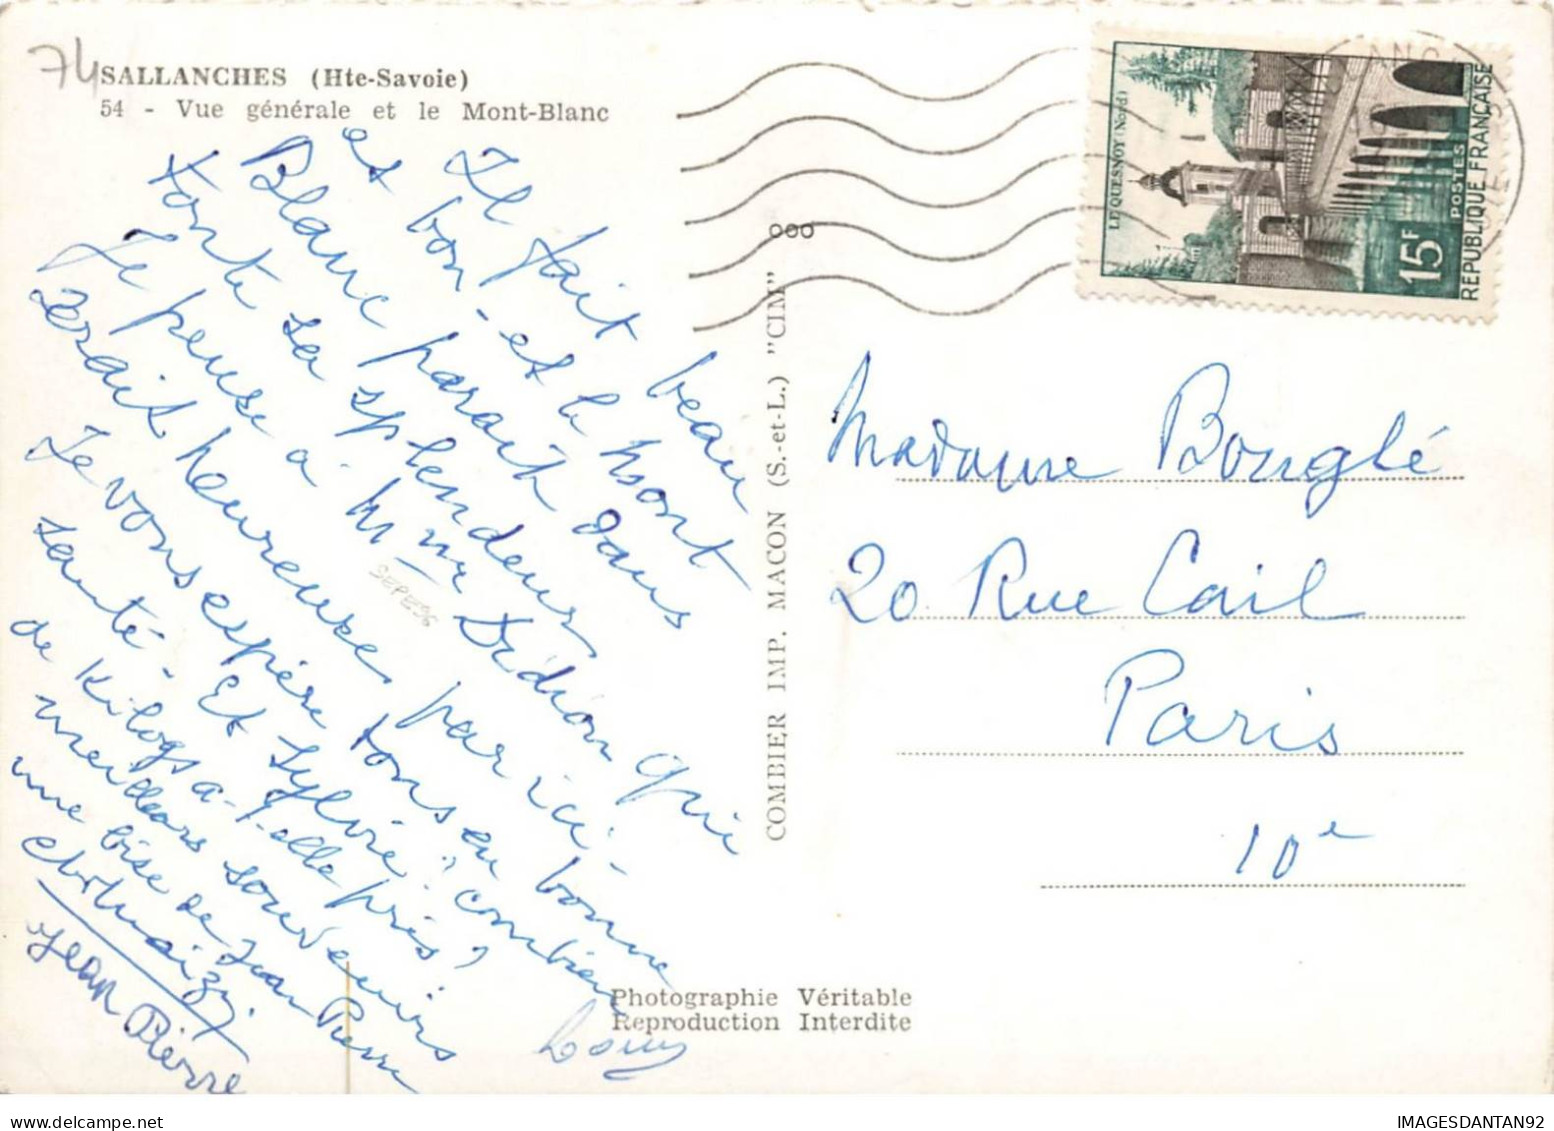 74
SALLANCHES (Hte-Savoie)
54 - Vue générale et le Mont-Blanc
Il fait beau
et bon - et le Mont
Blanc parait dans
toute sa splendeur
Je pense à Mme Dédion qui
serait heureuse par ici -
Je vous espère tous en bonne
santé - Et Sylvie? combien
de Kilogs a-t-elle pris?
meilleurs souvenirs
une bise de Jean Pierre
Jean Pierre
SEPE96
COMBIER IMP. MACON (S.-et-L.) "CIM"
LE QUESNOY (Nord)
15F
POSTES
REPUBLIQUE FRANÇAISE
Madame Bouglé
20 Rue Cail
Paris
10e
Photographie Véritable
Reproduction Interdite
www.delcampe.net
IMAGESDANTAN92